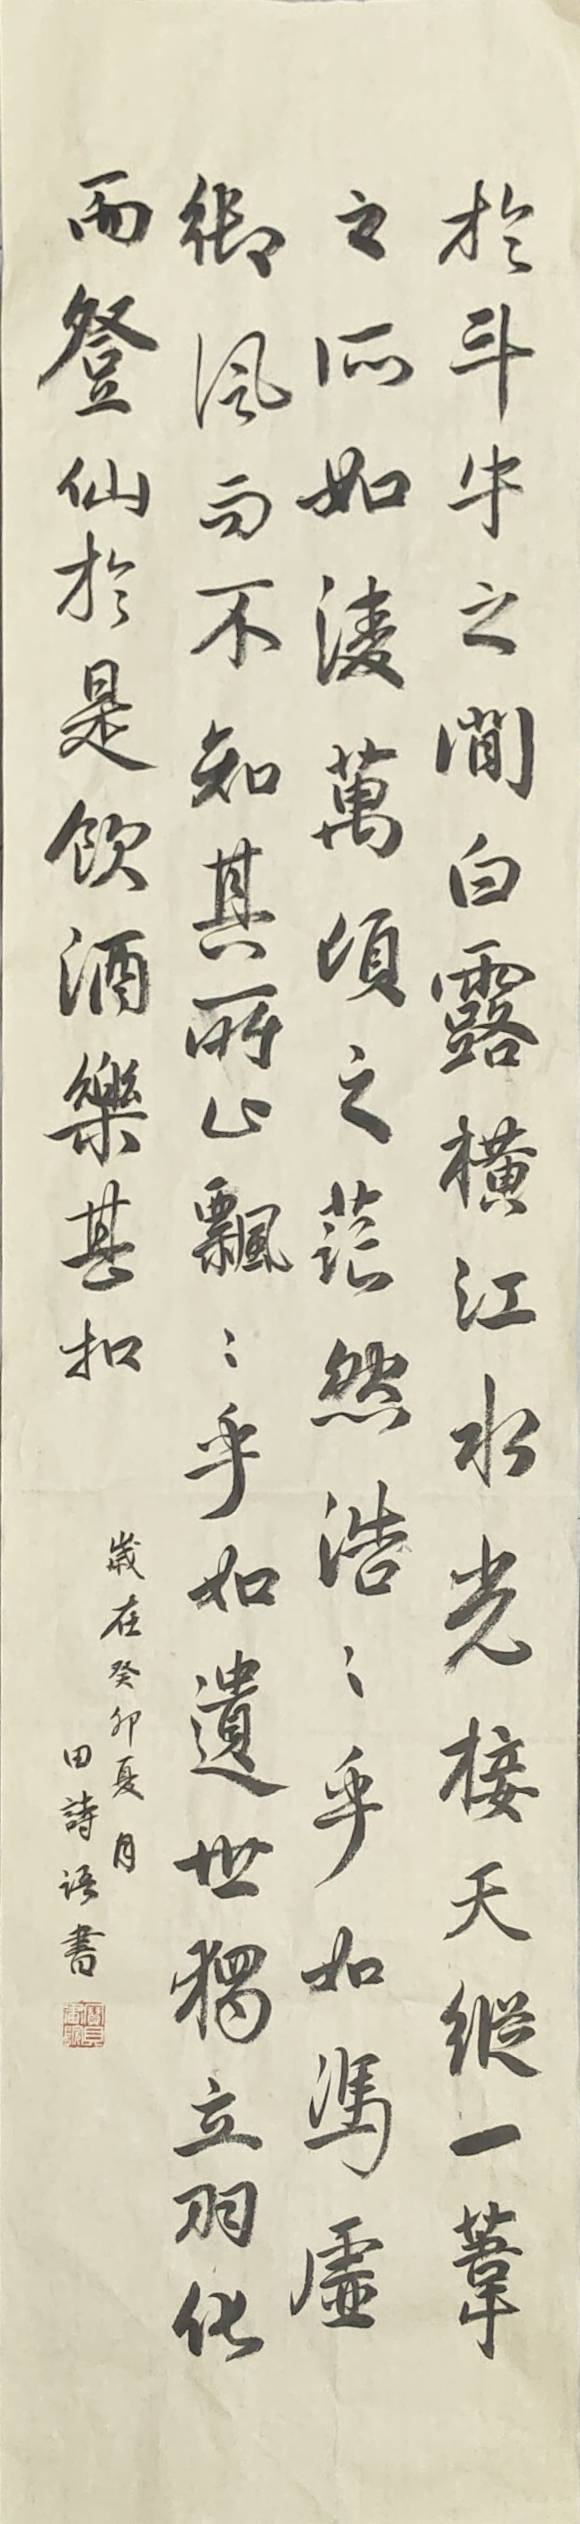 於斗牛之間白露橫江水光接天縱一葦
之所如淩萬頃之茫然浩〻乎如馮虛
御風而不知其所止飄〻乎如遺世獨立羽化
而登仙於是飲酒樂甚扣
歲在癸卯夏月
田詩语書